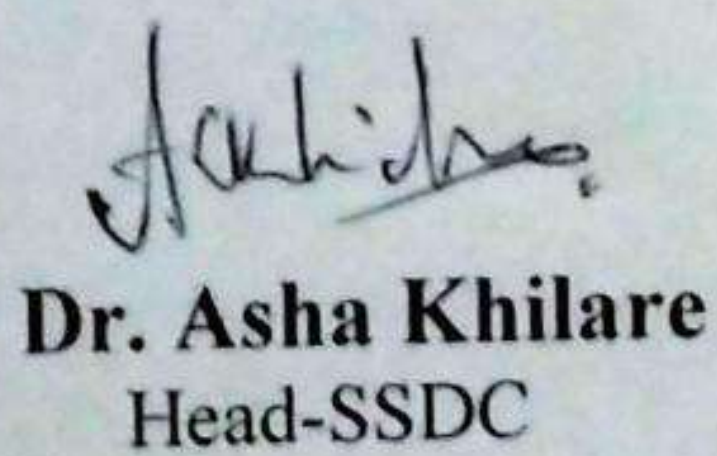 Dr. Asha Khilare
Head-SSDC